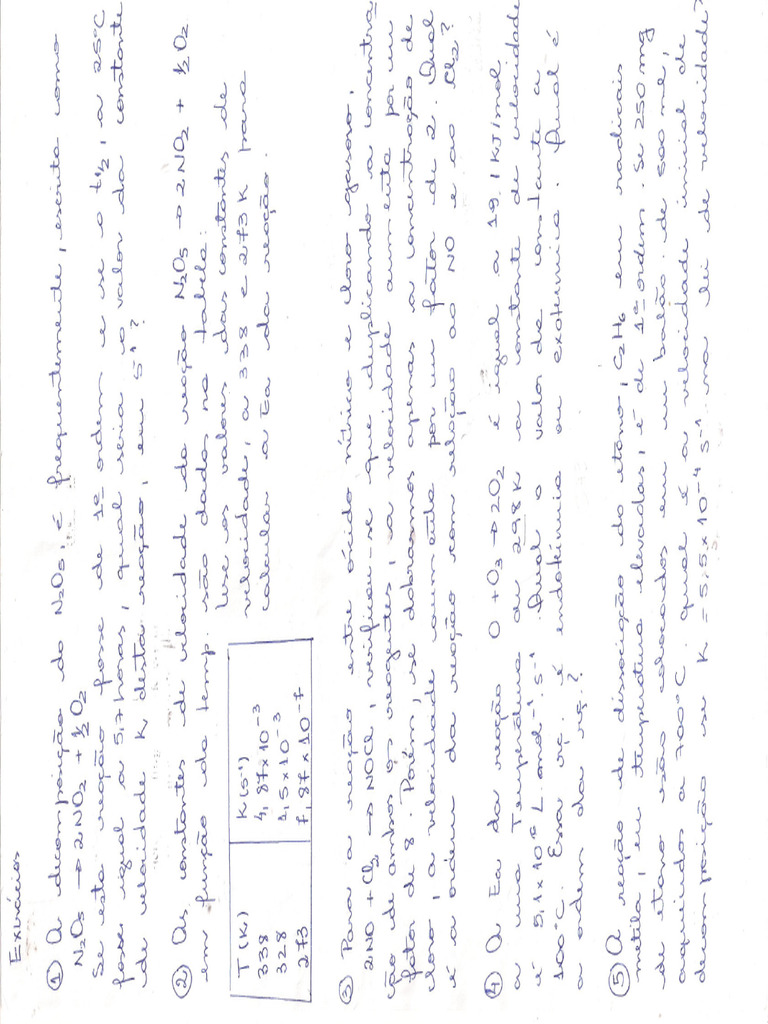 Exercícios
① A decomposição do N2O5, é frequentemente, escrita como
N2O5 → 2NO2 + ½O2
Se esta reação fosse de 1ª ordem e se o t½, a 25°C
fosse igual a 5,7 horas, qual seria o valor da constante
de velocidade K, desta reação, em s⁻¹?
② As constantes de velocidade da reação N2O5 → 2NO2 + ½O2
em função da temp. são dados na tabela:
T (K) K(s⁻¹)
338 4,87x10⁻³
328 1,5x10⁻³
273 7,87x10⁻⁷
Use os valores das constantes de
velocidade, a 338 e 273K para
calcular a Ea da reação.
③ Para a reação entre óxido nítrico e cloro gasoso,
2NO + Cl2 → NOCl, verificou-se que duplicando a concentra
ção de ambos os reagentes, a velocidade aumenta por um
fator de 8. Porém, se dobramos apenas a concentração de
cloro, a velocidade aumenta por um fator de 2. Qual
é a ordem da reação com relação ao NO e ao Cl2?
④ A Ea da reação O + O3 → 2O2 é igual a 19,1 KJ/mol
a uma Temperatura de 298K a constante de velocidade
é 5,1x10⁶ L.mol⁻¹.s⁻¹. Qual o valor da constante a
100°C. Essa rç. é endotérmica ou exotérmica. Qual é
a ordem da rç.?
⑤ A reação de dissociação do etano, C2H6 em radicais
metila, em temperatura elevadas, é de 1ª ordem. Se 250mg
de etano são colocados em um balão de 500 mL,
aquecidos a 700°C. qual é a velocidade inicial de
decomposição se K = 5,5x10⁻⁴ s⁻¹ na lei de velocidade?